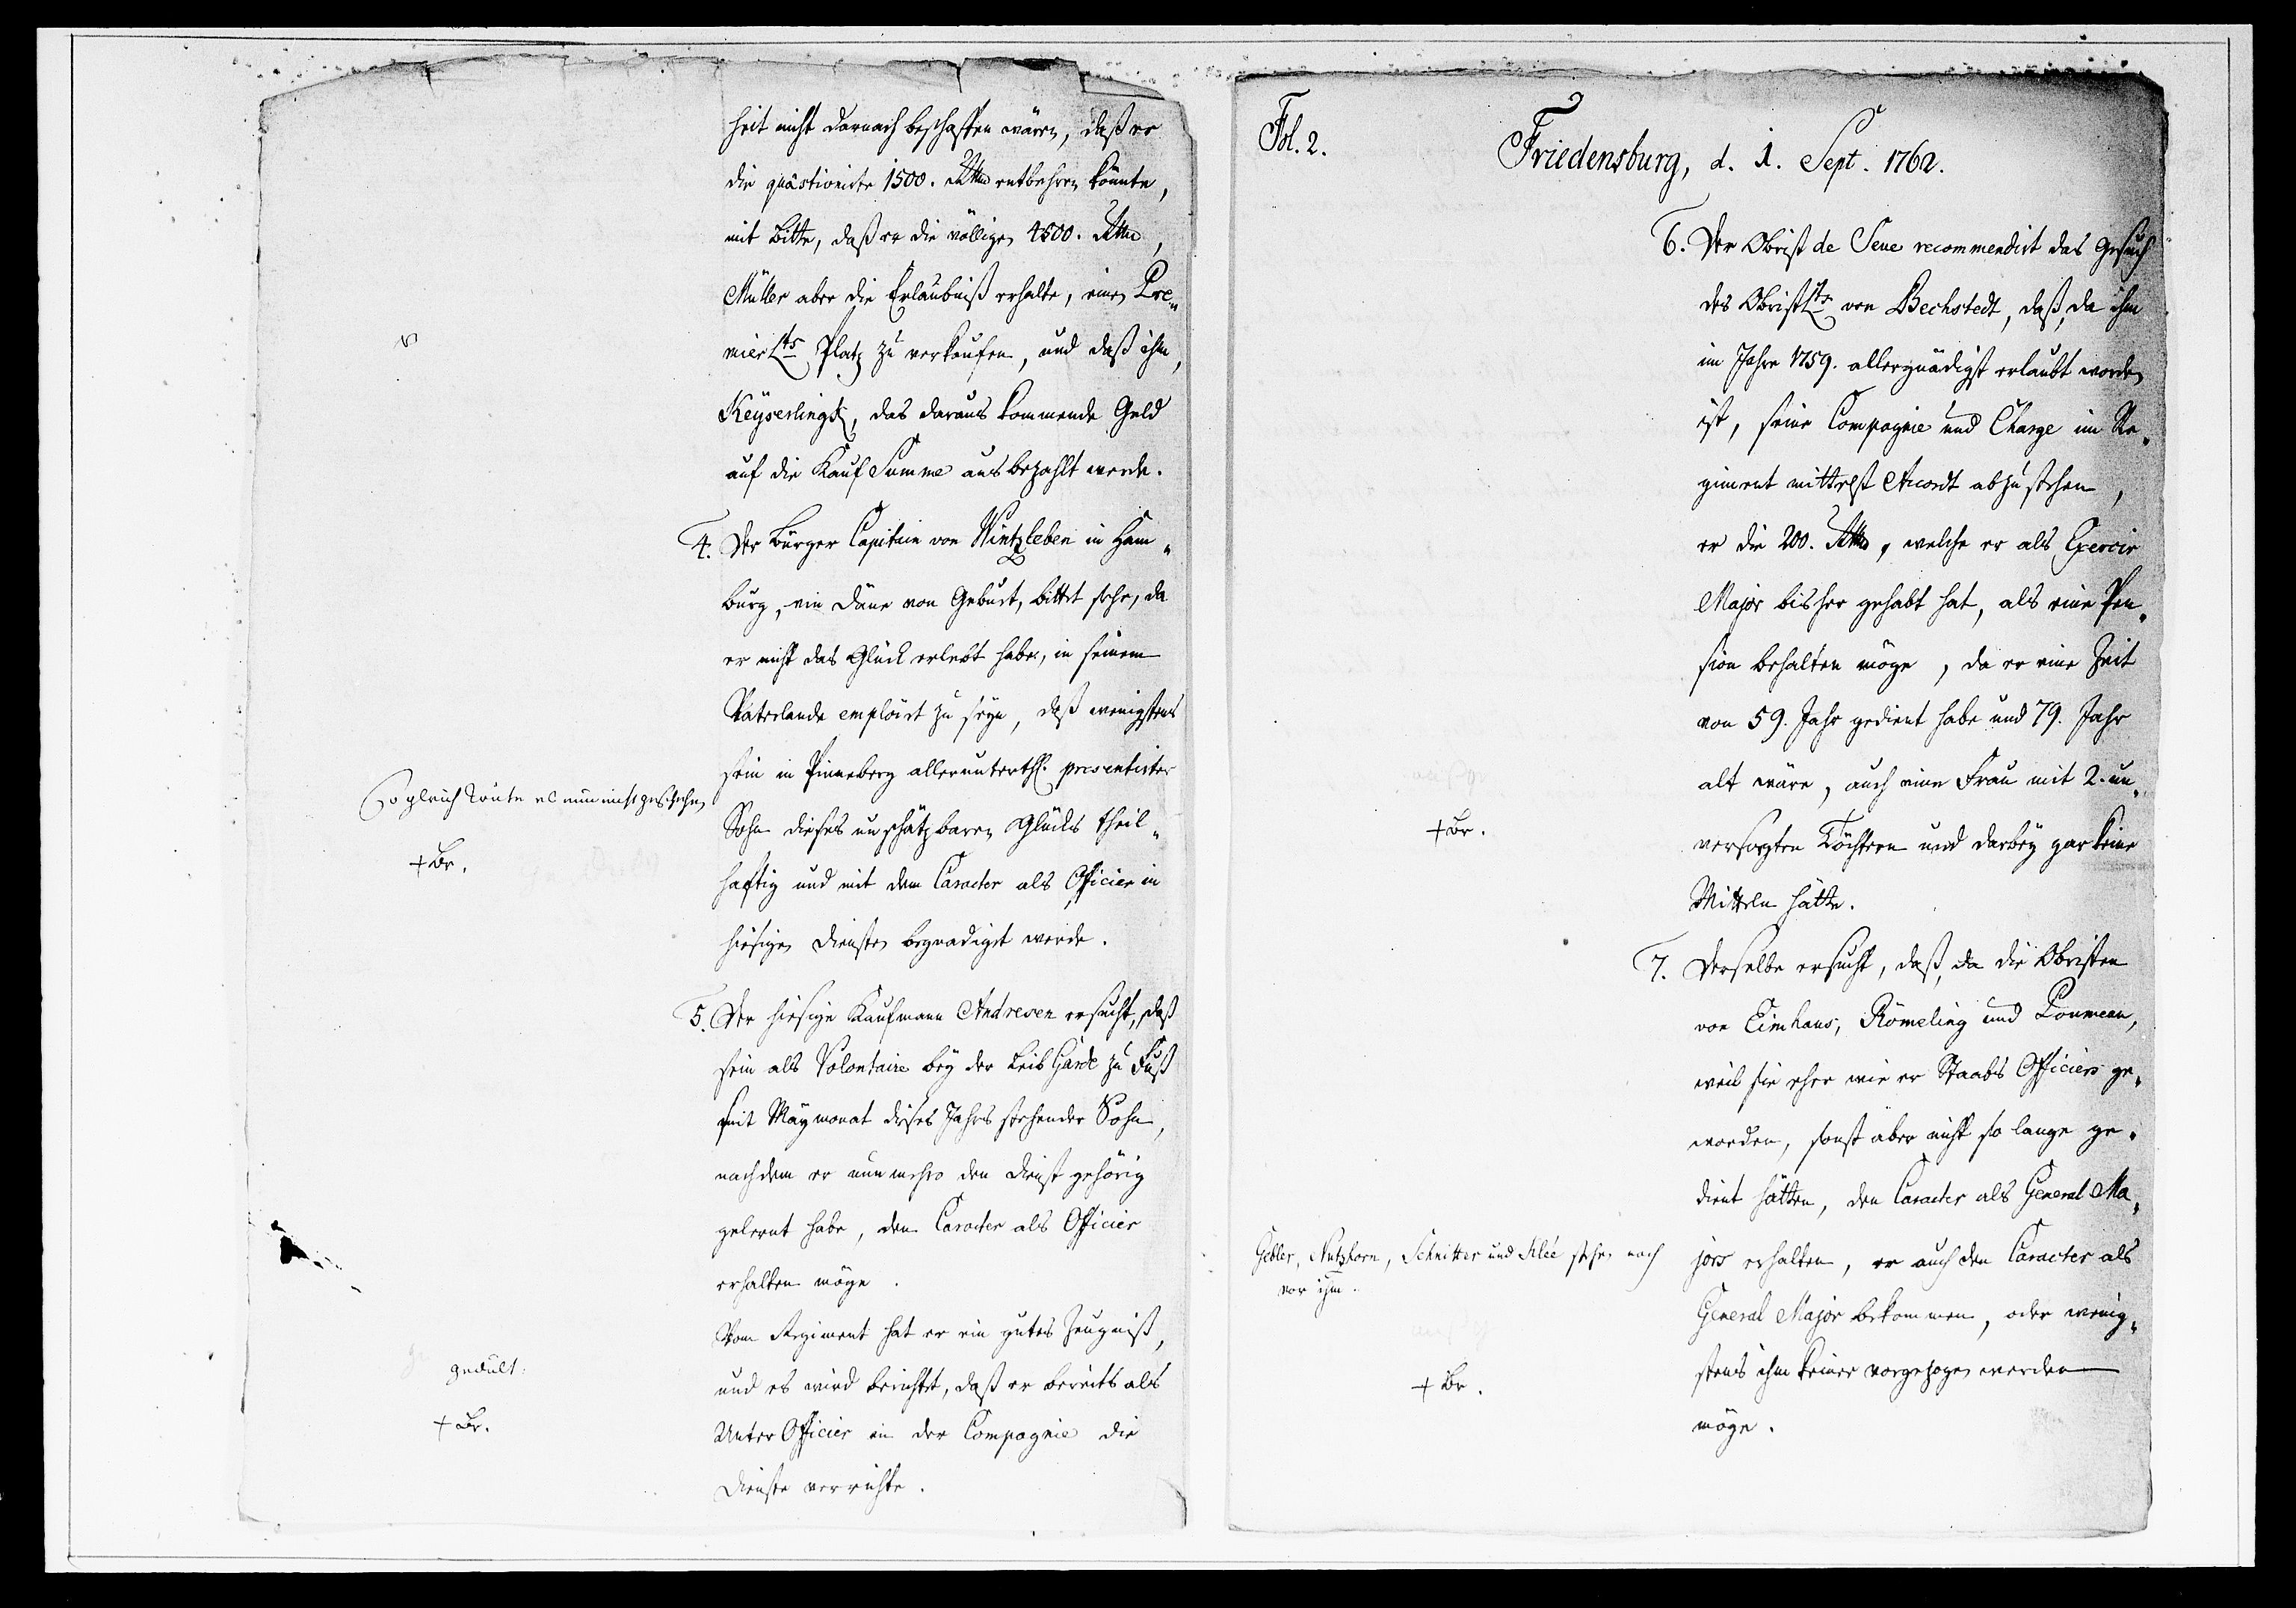 heit nicht darnach beschaffen wären, daß er
die quästionirte 1500. Rthlr entbehren könnte,
mit Bitte, daß er die völligen 4500. Rthlr,
Müller aber die Erlaubniß erhalte, einen Pre„
mier Lts Platz zu verkaufen, und daß ihm,
Keyserlingk, das daraus kommende Geld
auf die Kauf Summe ausbezahlt werde.
4. Der Bürger Capitain von Wintzleben in Ham„
burg, ein Däne von Geburt, bittet sehr, da
er nicht das Glück erlebt habe, in seinem
Vaterlande emploirt zu seyn, daß wenigstens
sein in Pinneberg allerunterthl. presentirter
Sohn dieses unschätzbaren Glücks theil„
haftig und mit dem Caracter als Officier in
hiesigen Diensten begnadiget werde.
So gleich könte es nun nicht geschehen
+ Br.
5. Der hiesige Kaufmann Andresen ersucht, daß
sein als Volontaire bey der Leib Garde zu Fuß
seit May monat dieses Jahrs stehender Sohn,
nachdem er nunmehro den Dienst gehörig
gelernt habe, den Caracter als Officier
erhalten möge.
Vom Regiment hat er ein gutes Zeugniß,
und es wird berichtet, daß er bereits als
Unter Officier in der Compagnie die
Dienste verrichte.
gedult:
+ Br.
Fol. 2.
Friedensburg, d. 1. Sept. 1762.
6. Der Obrist de Seue recommendirt das Gesuch
des Obrist Lts von Bechstedt, daß, da ihm
im Jahre 1759. allergnädigst erlaubt worden
ist, seine Compagnie und Charge im Re„
giment mittelst Accordt abzustehen,
er die 200. Rthlr, welche er als Exercir
Major bisher gehabt hat, als eine Pen„
sion behalten möge, da er eine Zeit
von 59. Jahr gedient habe und 79. Jahr
alt wäre, auch eine Frau mit 2. un„
versorgten Töchtern und darbey gar keine
Mitteln hätte.
+ Br.
7. Derselbe ersucht, daß, da die Obristen
von Eimhaus, Römeling und Poumeau,
weil sie eher wie er Staabs Officiers ge„
worden, sonst aber nicht so lange ge„
dient hätten, den Caracter als General Ma„
jors erhalten, er auch den Caracter als
General Major bekommen, oder wenig„
stens ihm keiner vorgezogen werden
möge.
Gebler, Nutzhorn, Schnitter und Klée stehen noch
vor ihm.
+ Br.